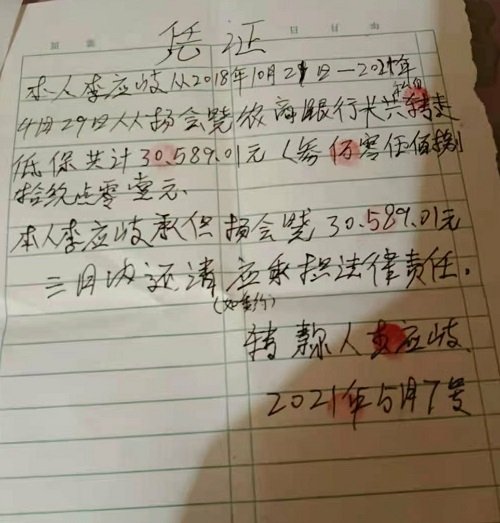 凭证
本人李应岐从2018年10月21日—2021年
4月29日从扬会凳农商银行共私自转走
低保共计30.589.01元(叁万零伍佰捌
拾玖点零壹元.
本人李应岐承保扬会凳30.589.01元
三月内还清应承担法律责任.
(如违约)
转款人李应岐
2021年5月7号